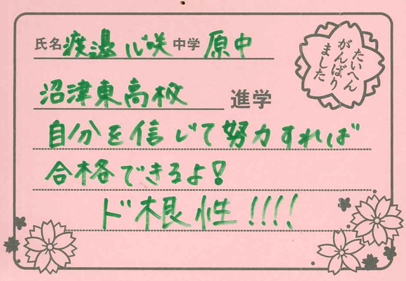 氏名 渡邉 心咲 中学 原中
たいへん
がんばり
ました
沼津東高校 進学
自分を信じて努力すれば
合格できるよ!
ド根性!!!!